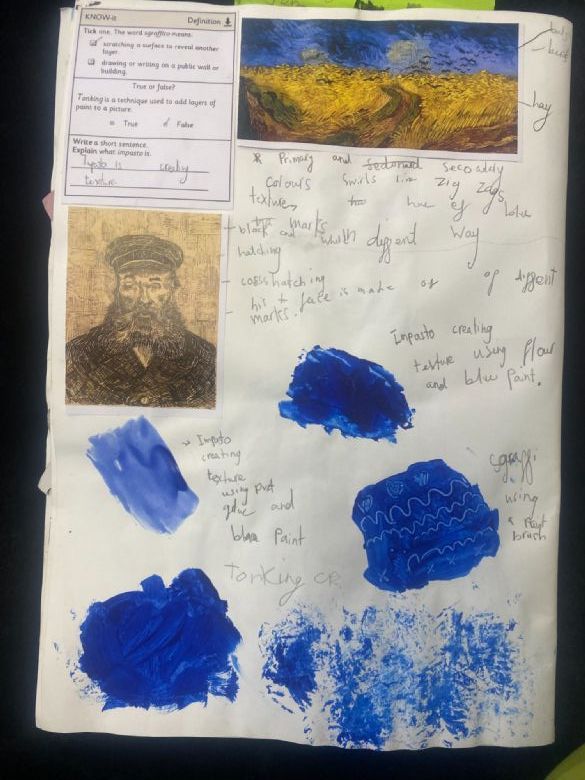 KNOW-it
Definition
Tick one. The word sgraffito means:
scratching a surface to reveal another
layer
drawing or writing on a public wall or
building.
True or false?
Tonking is a technique used to add layers of
paint to a picture.
True
False
Write a short sentence.
Explain what impasto is.
is creatiy
texture
hay
Primary and secondady
Colours Swirls zig zags
texture
marks
black and diffent way
hatching
cosshatching
his face is made of of diffent
marks.
Impasto creating
texture using flour
and blue Paint.
Impato
creating
texture
using pva
glue and
blue Paint
sgraffi
using
brush
Tonking